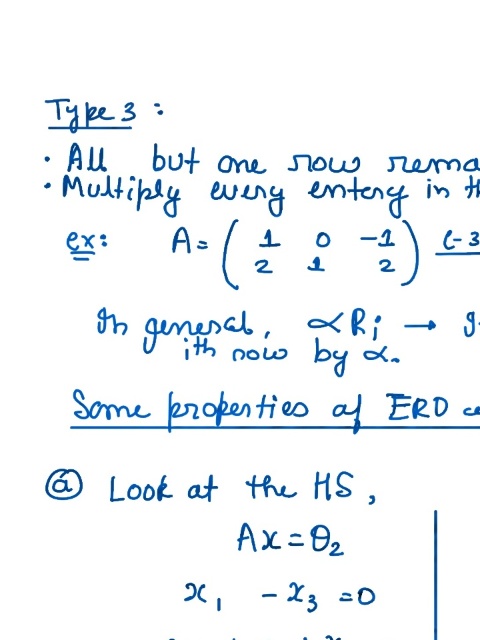 Type 3 :
· All but one row rema
· Multiply every entery in th
ex: A = ( 1 0 -1
2 1 2 ) (-3
In general, αRi →
ith row by α.
Some properties of ERO
ⓐ Look at the HS,
Ax = θ₂
x₁ - x₃ = 0